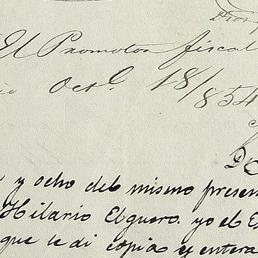 El Promotor fiscal
Octe 18/854
y ocho del mismo presen
Hilario Elguero. yo el Es
que le di copia y entera